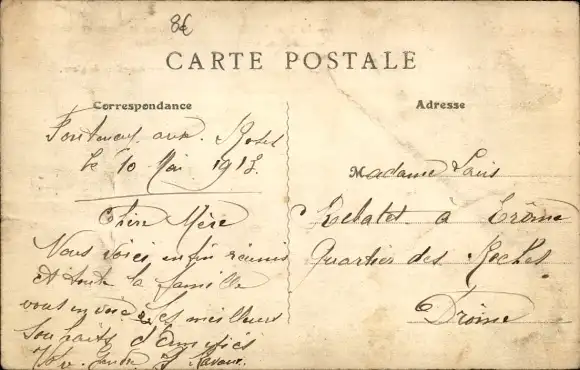 8€
CARTE POSTALE
Correspondance
Fontenay aux Roses
le 10 Mai 1913.
Chère Mère
Nous voici enfin réunis
et toute la famille
vous envoie ses meilleurs
souhaits d'amitiés
Adresse
Madame Louis
Rebatet à Crôme
Quartier des Roches
Drôme